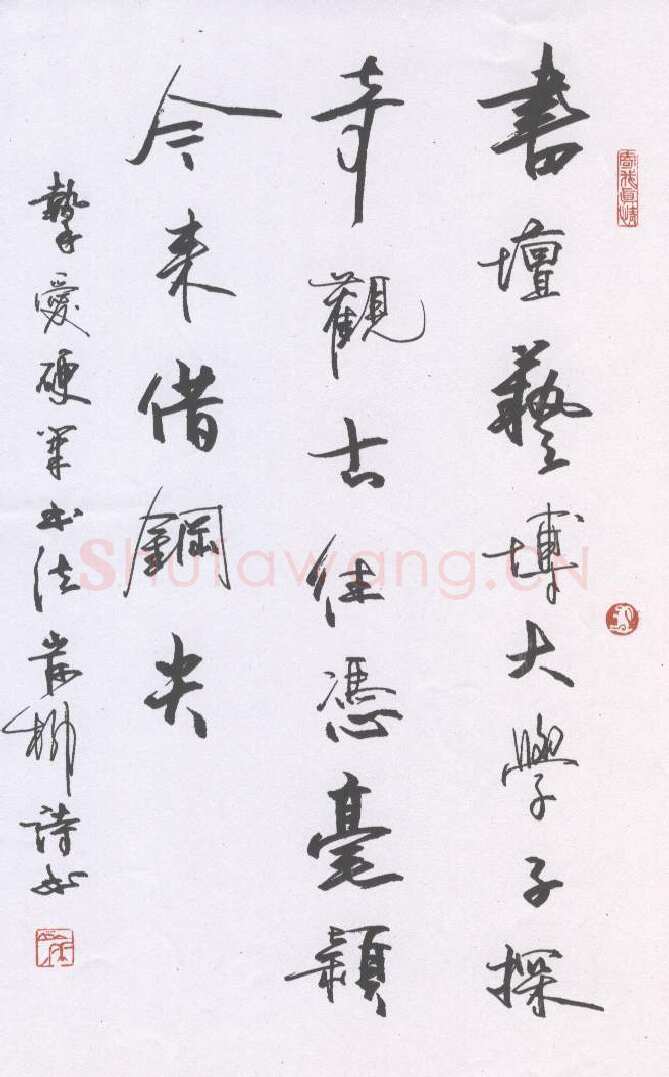 書壇藝博大學子探
奇觀古往憑毫穎
今来借鋼尖
摯愛硬筆書法 柳詩書
Shufawang.CN